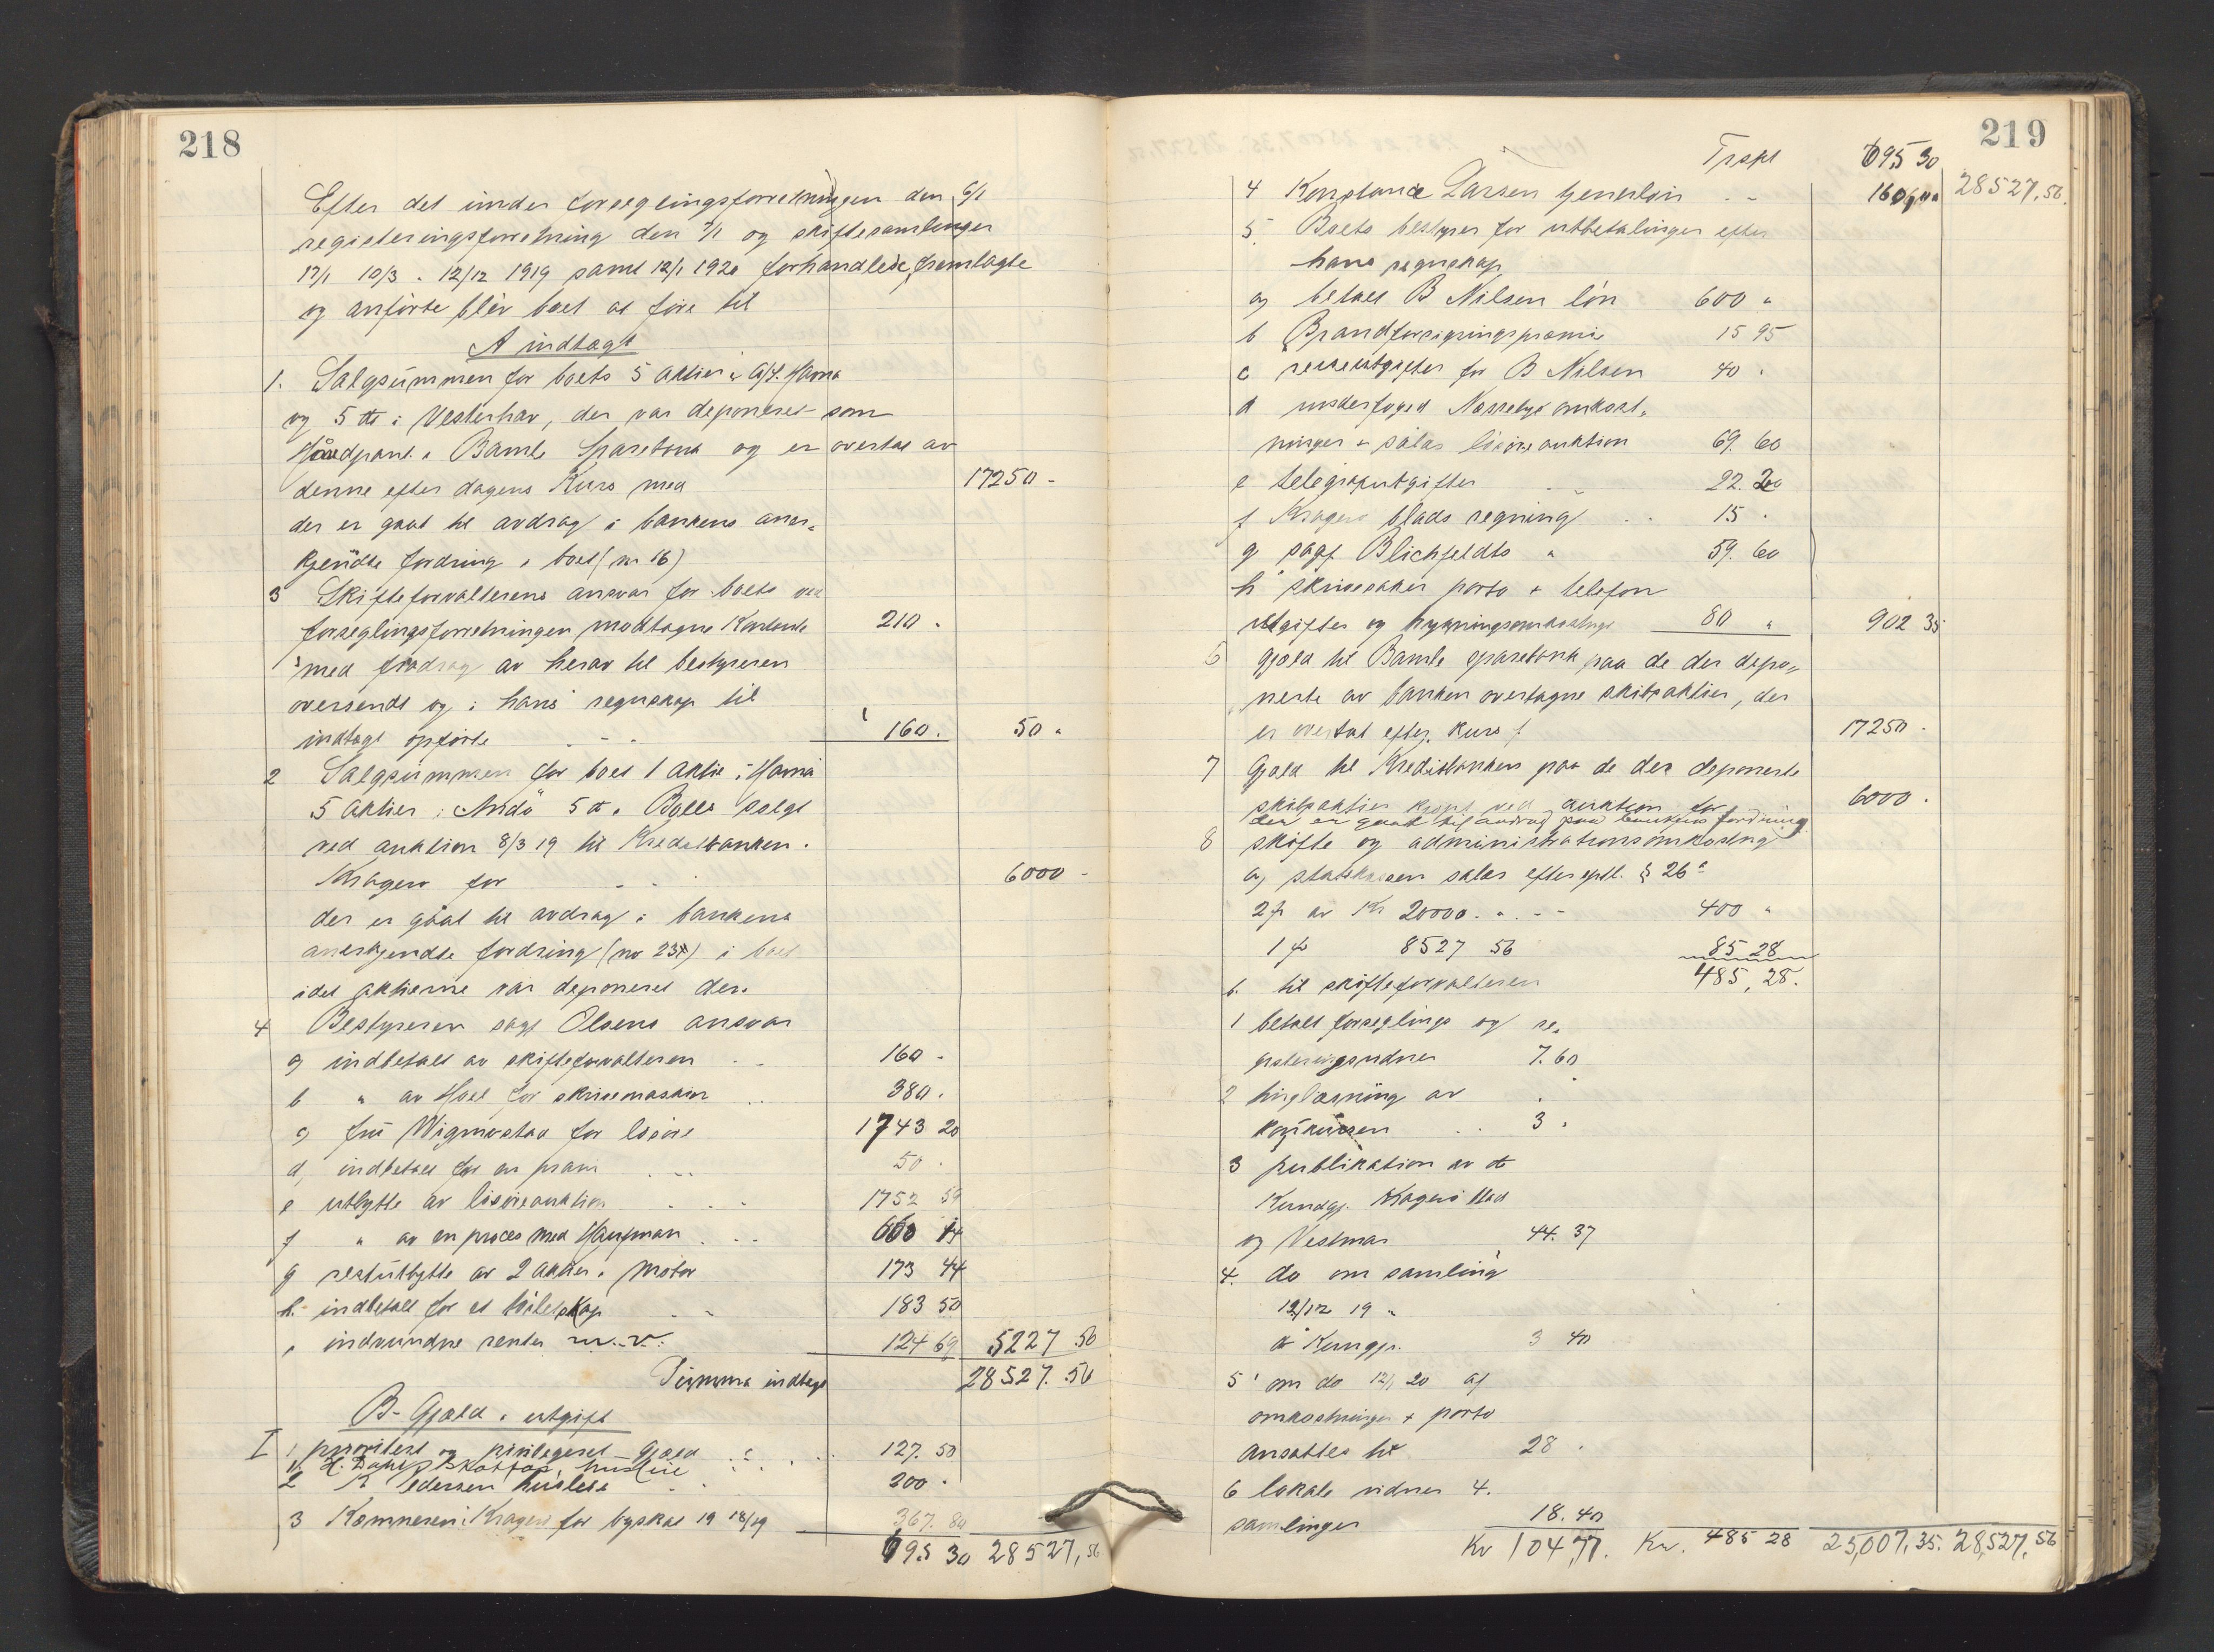 218
Efter det under forseglingsforretningen den 6/1
registeringsforretning den 7/1 og skiftesamlinger
17/1 10/3 . 12/12 1919 samt 12/1 1920 forhandlede, fremlagte
og anførte blev boet at føre til
A indtægt
1. Salgsummen for boets 5 aktier i A/S. Hama
og 5 do i Vesterhav, der var deponeret som
Haandpant i Bamle Sparebank og er overtat av
denne efter dagens Kurs med 17250 -
der er gaat til avdrag i bankens aner-
kjendte fordring i boet (nr 16)
3 Skifteforvalterens ansvar for boets ved
forseglingsforretningen modtagne Kontante 210 -
med fradrag av herav til bestyreren
oversendt og i hans regnskap til
indtægt opførte - - - 160. 50 "
2 Salgsummen for boet 1 aktie i Hama
5 aktier i Andö 5 do i Balla solgt
ved auktion 8/3 19 til Kreditbanken.
Kragerø for - - 6000 -
der er gaat til avdrag i bankens
anerkjendte fordring (nr 23) i boet
idet aktierne var deponeret der.
4 Bestyreren sagf Olsens ansvar
a) indbetalt av skifteforvalteren - - 160 -
b " av Hoel for skrivemaskin .. 380.
c) fru Wigmostad for løsøre 1743 20
d, indbetalt for en pram - - - 50 .
e utbytte av løsøreauktion - - - 1752 59
f " av en proces med Haupman - - - 660 14
g restutbytte av 2 aktier i Motor 173 44
h. indbetalt for et toiletskap - - 183 50
i indvundne renter m.v. 124 69 5227 56
Summa indtægt 28527. 56
B- Gjæld i utgift
I 1 prioritert og privilegeret Gjæld - - . . 127. 50
2 K Pedersen husleie - - 200 .
3 Kæmneren i Kragerø for byskat 19 18/19 367. 80
695 30 28527,56
219
Trspt 695 30 28527,56.
4 Konstance Larsen tjenerløn - - 160 "
5. Boets bestyrer for utbetalinger efter
hans regnskap
a) betalt B Nilsen løn 600 "
b Brandforsikringspræmie 15 95
c reiseutgifter for B Nilsen 40 .
d underfoged Nærrebys omkost-
ninger i salær løsøreauktion 69. 60
e telegrafutgifter - - 22. 20
f Kragerø blads regning . . 15 .
g sagf Blichfeldts " 59. 60
h skrivesaker porto + telefon
utgifter og trykningsomkostninger 80 " 902 35
6 gjæld til Bamle sparebank paa de der depo-
nerte av banken overtagne skibsaktier, der
er overtat efter kurs / 17250 .
7 Gjæld til Kreditbanken paa de der deponerte
skibsaktier kjøpt ved auktion for 6000 .
der er gaat til avdrag paa bankens fordring
8 skifte og administrationsomkostng
a) statskassen salær efter sptl. § 26 a
2 % av Kr 20000. - . - - 400 "
1 % 8527 56 85 28
485, 28.
b. til skifteforvalteren
1 betalt forseglings og re-
gisteringsvidner 7.60
2 tinglæsning av
konkursen . . 3 .
3 publikation av do
Kundgj. Kragerø blad
og Vestmar 44. 37
4. do om samling
12/12 19 "
i Kungjr. 3 40
5 om do 12/1 20 af
omkostninger + porto
ansattes til 28 .
6 lokale vidner 4.
samlinger 18. 40
Kr 104,77. Kr. 485 28 25,007,35. 28,527,56